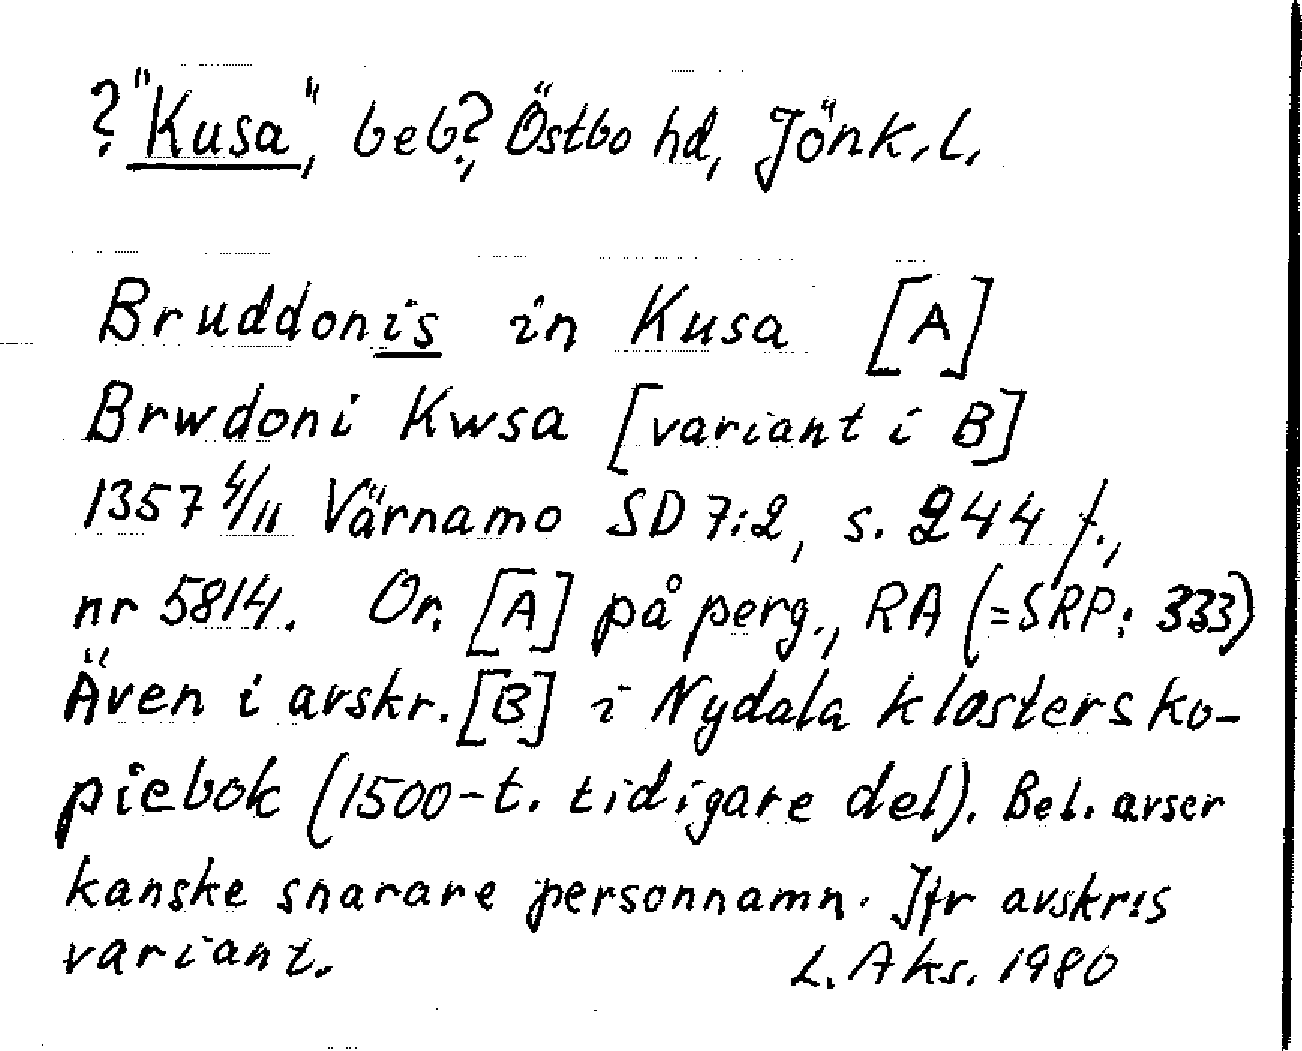 ?"Kusa", beb?, Östbo hd, Jönk.l.
Bruddonis in Kusa [A]
Brwdoni Kwsa [variant i B]
1357 4/11 Värnamo SD 7:2, s. 244 f.,
nr 5814. Or. [A] på perg., RA (=SRP: 333)
Även i avskr. [B] i Nydala klosters ko-
piebok (1500-t. tidigare del). Bel. avser
kanske snarare personnamn. Jfr avskr:s
variant. L. Aks. 1980